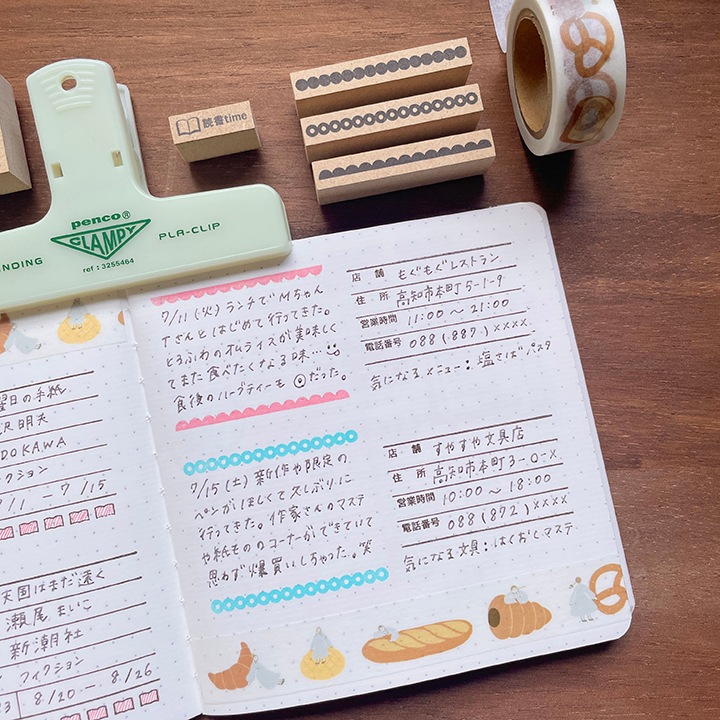 読書time
penco®
CLAMPY
ref : 3255464
NDING
PLA-CLIP
曜日の手紙
沢 明夫
DOKAWA
クション
7/1 ー 7/15
天国はまだ遠く
瀬尾 まいこ
新潮社
フィクション
8/20 ー 8/26
7/11 (火) ランチで Mちゃん
Tさんとはじめて行ってきた。
とろふわのオムライスが美味しく
てまた食べたくなる味…
食後のハーブティーも◎だった。
店舗 もぐもぐレストラン
住所 高知市本町5-1-9
営業時間 11:00 〜 21:00
電話番号 088 (887) ××××
気になるメニュー：塩さばパスタ
7/15 (土) 新作や限定の
ペンがほしくて久しぶりに
行ってきた。作家さんのマステ
や紙もののコーナーができていて
思わず爆買いしちゃった。笑
店舗 すやすや文具店
住所 高知市本町3-0-x
営業時間 10:00 〜 18:00
電話番号 088 (872) ××××
気になる文具：はくおしマステ